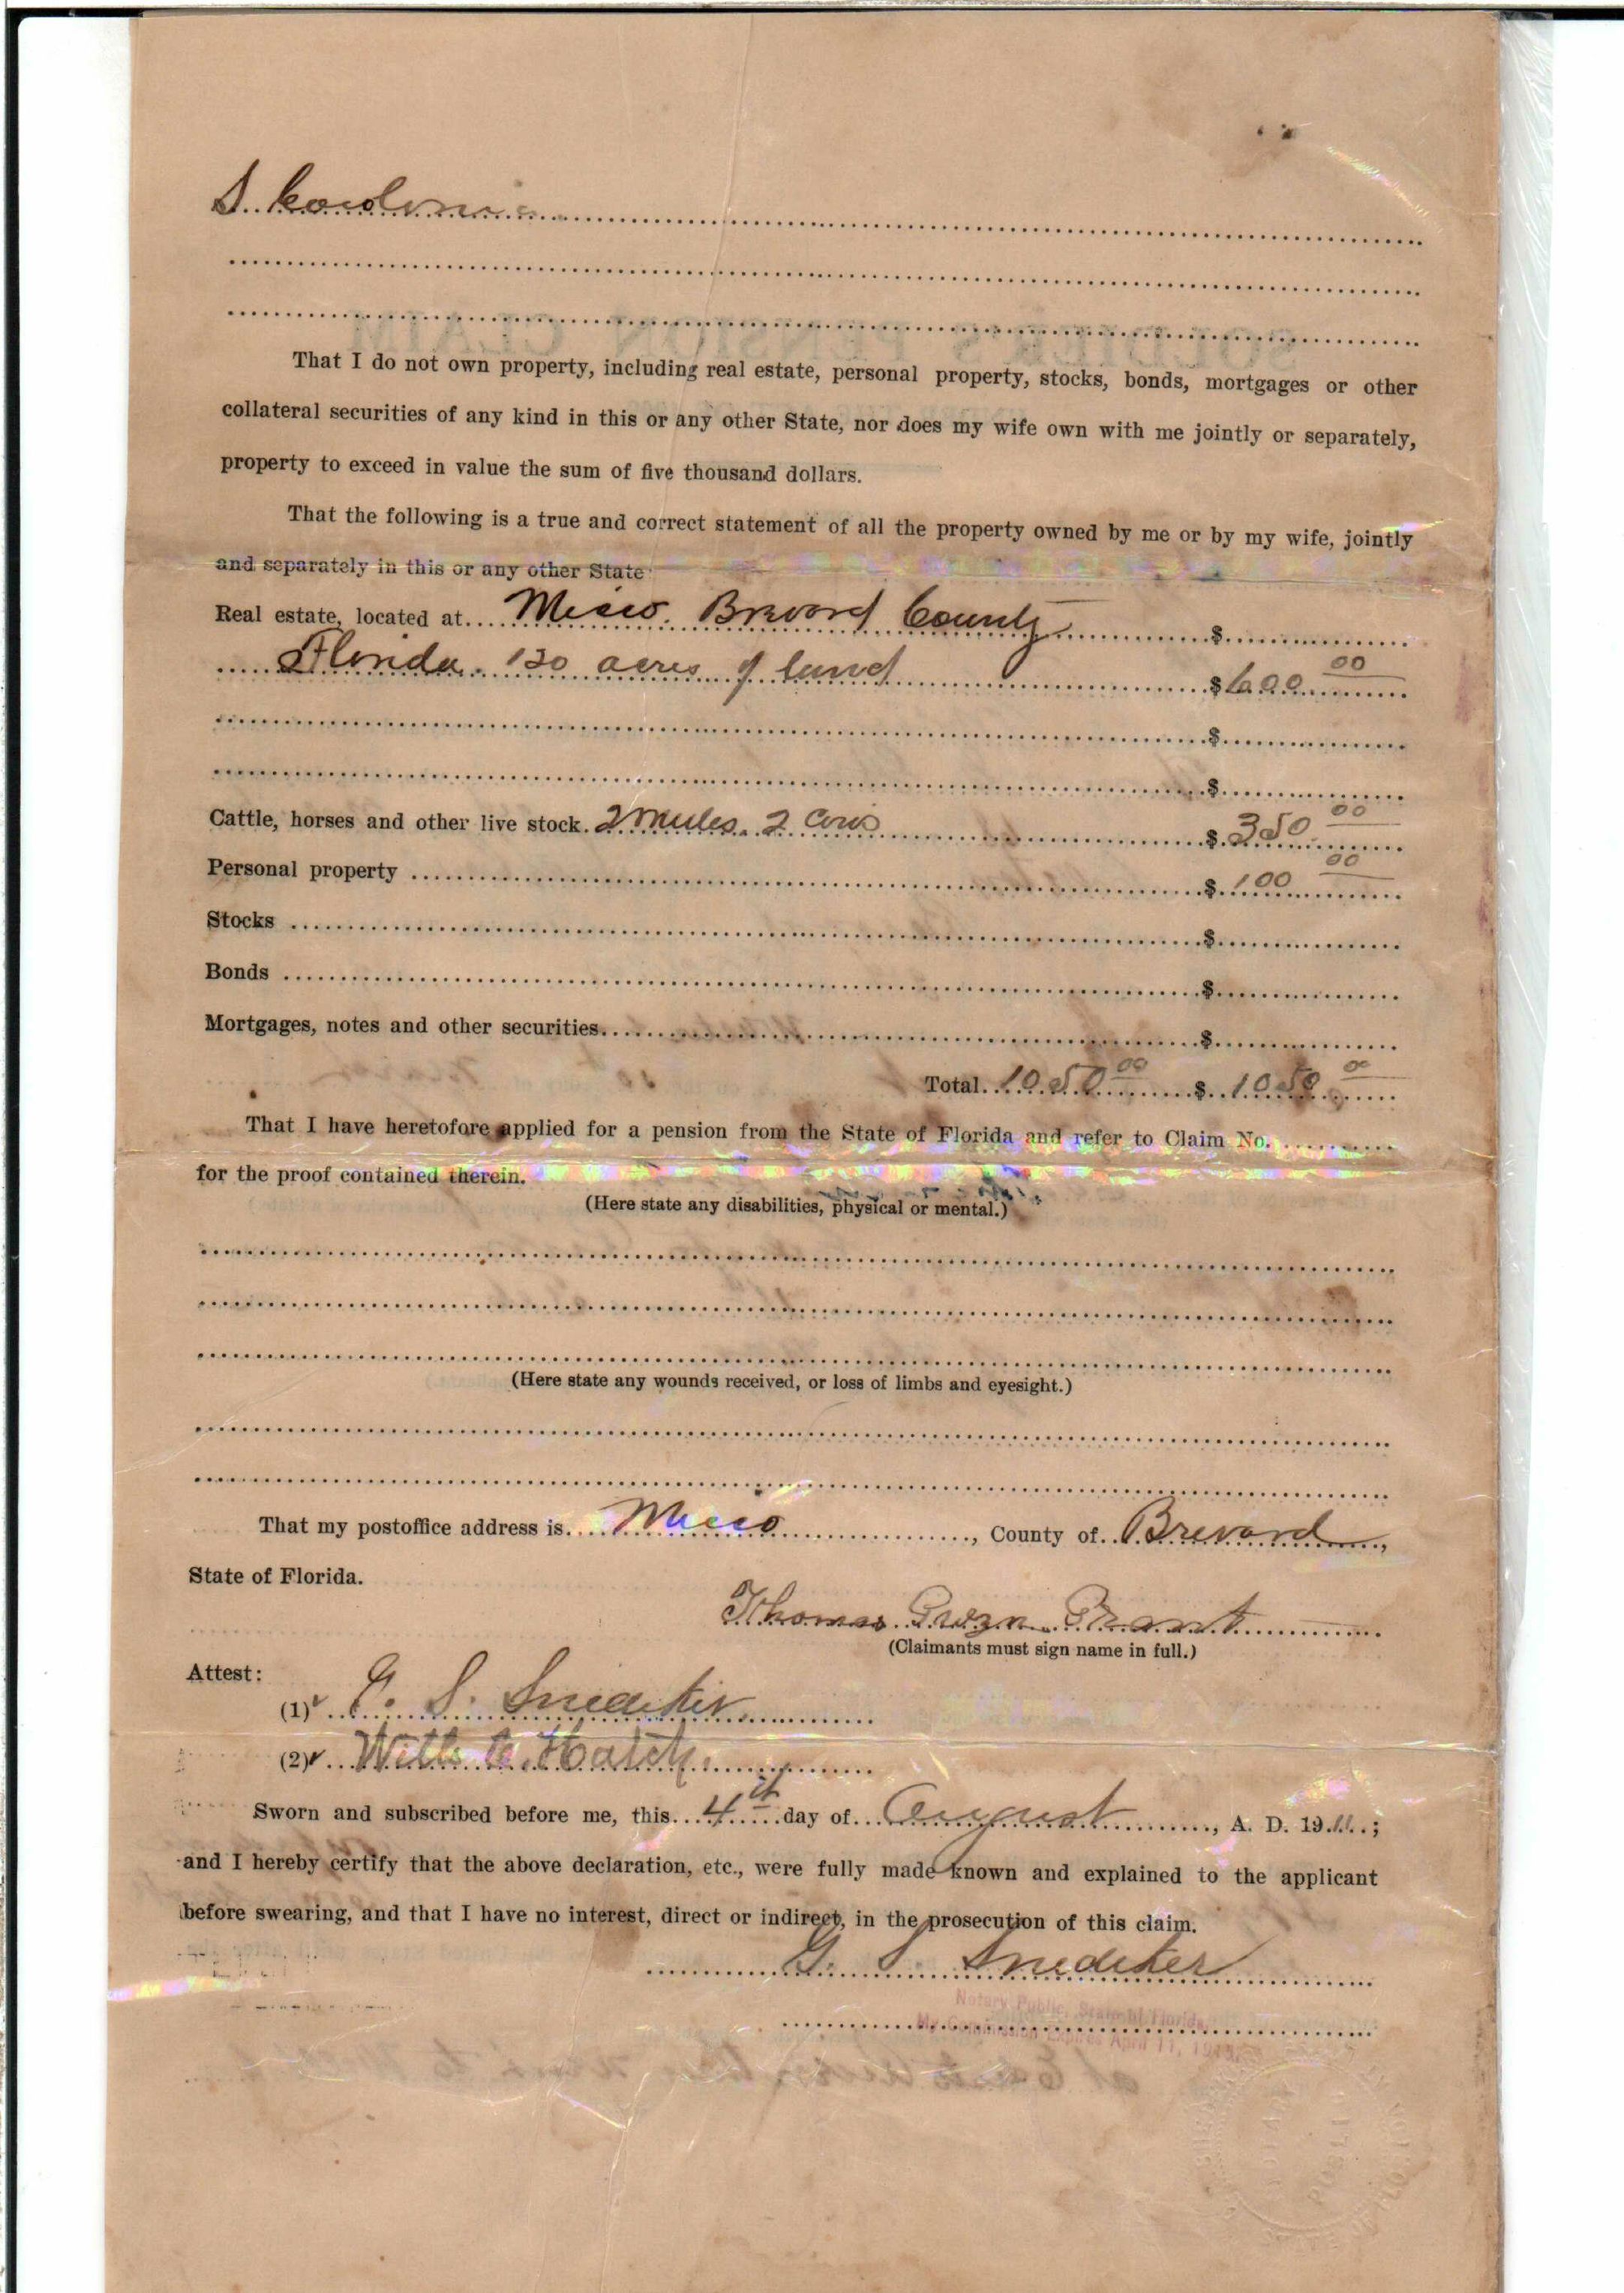 S. Carolina
That I do not own property, including real estate, personal property, stocks, bonds, mortgages or other
collateral securities of any kind in this or any other State, nor does my wife own with me jointly or separately,
property to exceed in value the sum of five thousand dollars.
That the following is a true and correct statement of all the property owned by me or by my wife, jointly
and separately in this or any other State
Real estate, located at Micco. Brevard County $
Florida. 130 acres of land $600 00
$
$
Cattle, horses and other live stock. 2 Mules. 2 Cows $ 350 00
Personal property $ 100 00
Stocks $
Bonds $
Mortgages, notes and other securities $
Total. 1050 00 $ 1050 00
That I have heretofore applied for a pension from the State of Florida and refer to Claim No.
for the proof contained therein.
(Here state any disabilities, physical or mental.)
(Here state any wounds received, or loss of limbs and eyesight.)
That my postoffice address is Micco, County of Brevard,
State of Florida.
Thomas Gwyn Grant
(Claimants must sign name in full.)
Attest:
(1) G. S. Snediker
(2) Hatch.
Sworn and subscribed before me, this 4th day of August, A. D. 1911;
and I hereby certify that the above declaration, etc., were fully made known and explained to the applicant
before swearing, and that I have no interest, direct or indirect, in the prosecution of this claim.
G. S. Snediker
Notary Public, State of Florida,
My Commission Expires April 11,